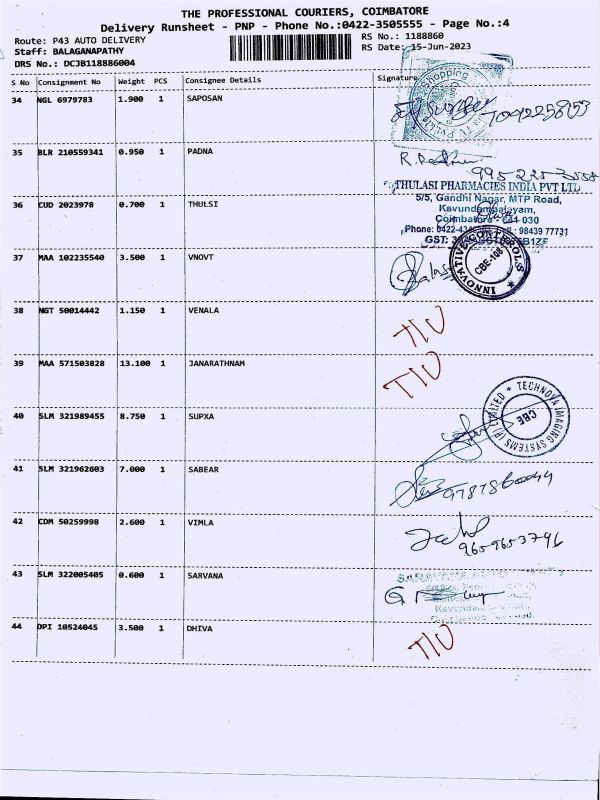 THE PROFESSIONAL COURIERS, COIMBATORE
Delivery Runsheet - PNP - Phone No.:0422-3505555 - Page No.:4
Route: P43 AUTO DELIVERY
RS No.: 1188860
Staff: BALAGANAPATHY
RS Date: 15-Jun-2023
DRS No.: DCJB118886004
S No Consignment No Weight PCS Consignee Details Signature
34 NGL 6979783 1.900 1 SAPOSAN
Shopping
35 BLR 210559341 0.950 1 PADNA
THULASI PHARMACIES INDIA PVT LTD
5/5, Gandhi Nagar, MTP Road,
36 CUD 2023978 0.700 1 THULSI
Kavundampalayam,
Coimbatore - 641 030
Phone: 0422-434 98439 77731
GST:
37 MAA 102235540 3.500 1 VNOVT
INNOVATIVE CONTROLS
CBE-108
38 NGT 50014442 1.150 1 VENALA
39 MAA 571503828 13.100 1 JANARATHNAM
TECHNOVA IMAGING SYSTEMS (P) LIMITED
CBE
40 SLM 321989455 8.750 1 SUPXA
41 SLM 321962603 7.000 1 SABEAR
42 CDM 50259998 2.600 1 VIMLA
9659653796
43 SLM 322005405 0.600 1 SARVANA
44 DPI 10524045 3.500 1 DHIVA